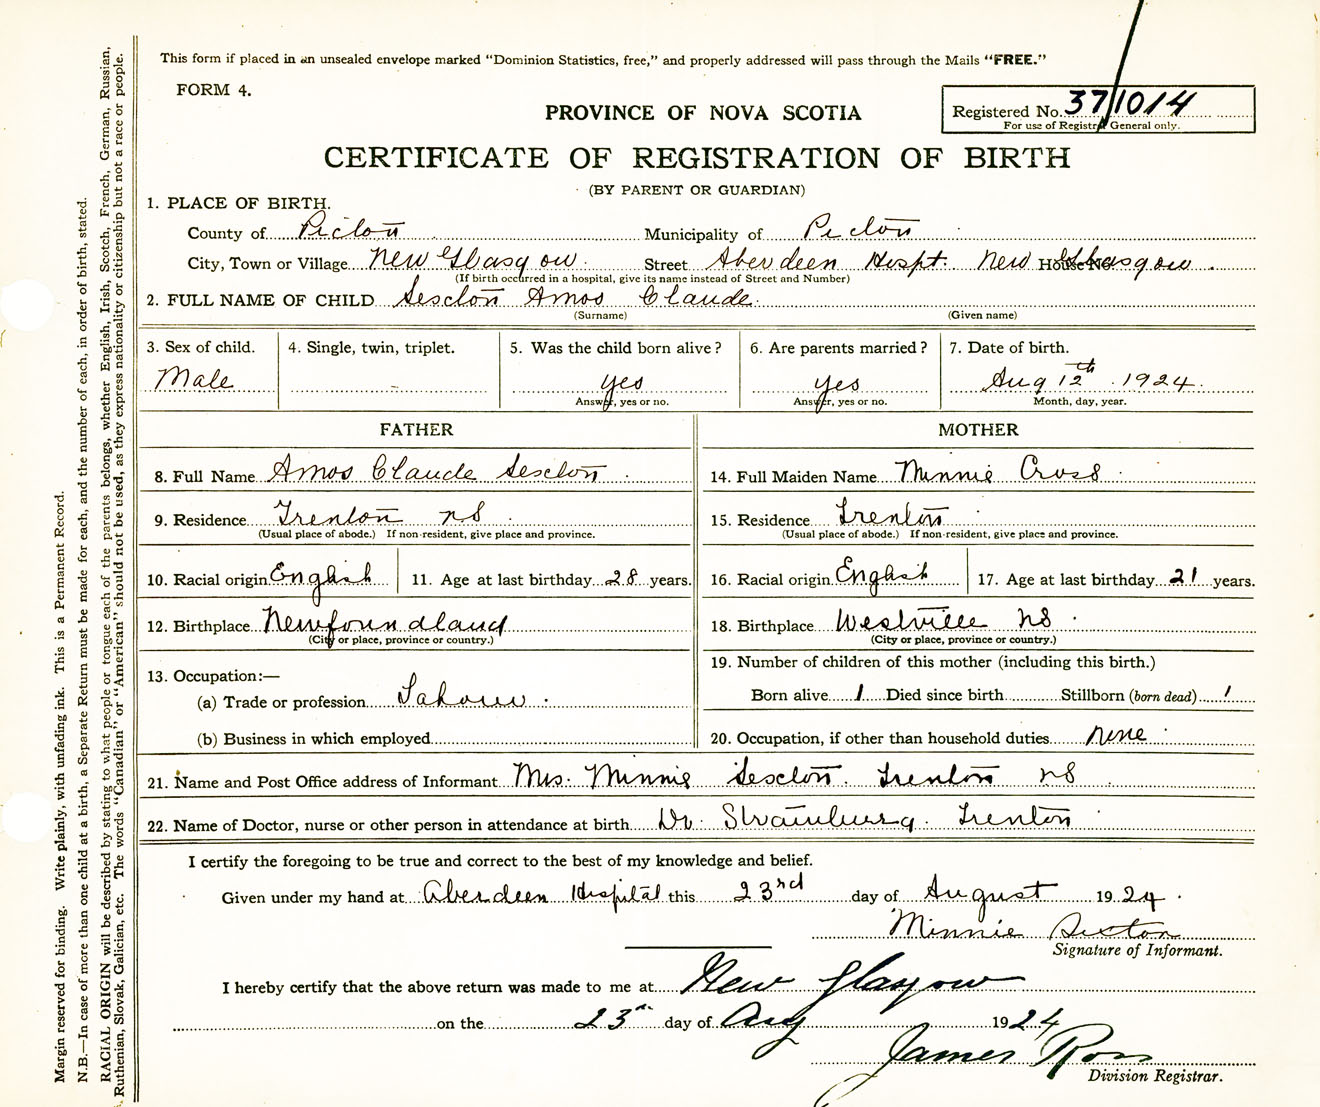 This form if placed in an unsealed envelope marked "Dominion Statistics, free," and properly addressed will pass through the Mails "FREE."
FORM 4.
PROVINCE OF NOVA SCOTIA
Registered No. 37/1014
For use of Registrar General only.
CERTIFICATE OF REGISTRATION OF BIRTH
(BY PARENT OR GUARDIAN)
1. PLACE OF BIRTH.
County of Pictou Municipality of Pictou
City, Town or Village New Glasgow Street Aberdeen Hospt. New Glasgow House No.
(If birth occurred in a hospital, give its name instead of Street and Number)
2. FULL NAME OF CHILD Sexton Amos Claude
(Surname) (Given name)
3. Sex of child. 4. Single, twin, triplet. 5. Was the child born alive? 6. Are parents married? 7. Date of birth.
Male - yes yes Aug 12th 1924
Answer, yes or no. Answer, yes or no. Month, day, year.
FATHER MOTHER
8. Full Name Amos Claude Sexton 14. Full Maiden Name Minnie Cross
9. Residence Trenton NS 15. Residence Trenton
(Usual place of abode.) If non-resident, give place and province. (Usual place of abode.) If non-resident, give place and province.
10. Racial origin English 11. Age at last birthday 28 years. 16. Racial origin English 17. Age at last birthday 21 years.
12. Birthplace Newfoundland 18. Birthplace Westville NS
(City or place, province or country.) (City or place, province or country.)
13. Occupation:— 19. Number of children of this mother (including this birth.)
(a) Trade or profession Born alive 1 Died since birth Stillborn (born dead) 1
(b) Business in which employed 20. Occupation, if other than household duties none
21. Name and Post Office address of Informant Mrs. Minnie Sexton. Trenton NS
22. Name of Doctor, nurse or other person in attendance at birth Dr. Trenton
I certify the foregoing to be true and correct to the best of my knowledge and belief.
Given under my hand at Aberdeen Hospital this 23rd day of August 1924.
Minnie Sexton
Signature of Informant.
I hereby certify that the above return was made to me at New Glasgow
on the 23rd day of Aug 1924
James Ross
Division Registrar.
Margin reserved for binding. Write plainly, with unfading ink. This is a Permanent Record.
N.B.—In case of more than one child at a birth, a Separate Return must be made for each, and the number of each, in order of birth, stated.
RACIAL ORIGIN will be described by stating to what people or tongue each of the parents belongs, whether English, Irish, Scotch, French, German, Russian,
Ruthenian, Slovak, Galician, etc. The words "Canadian" or "American" should not be used, as they express nationality or citizenship but not a race or people.